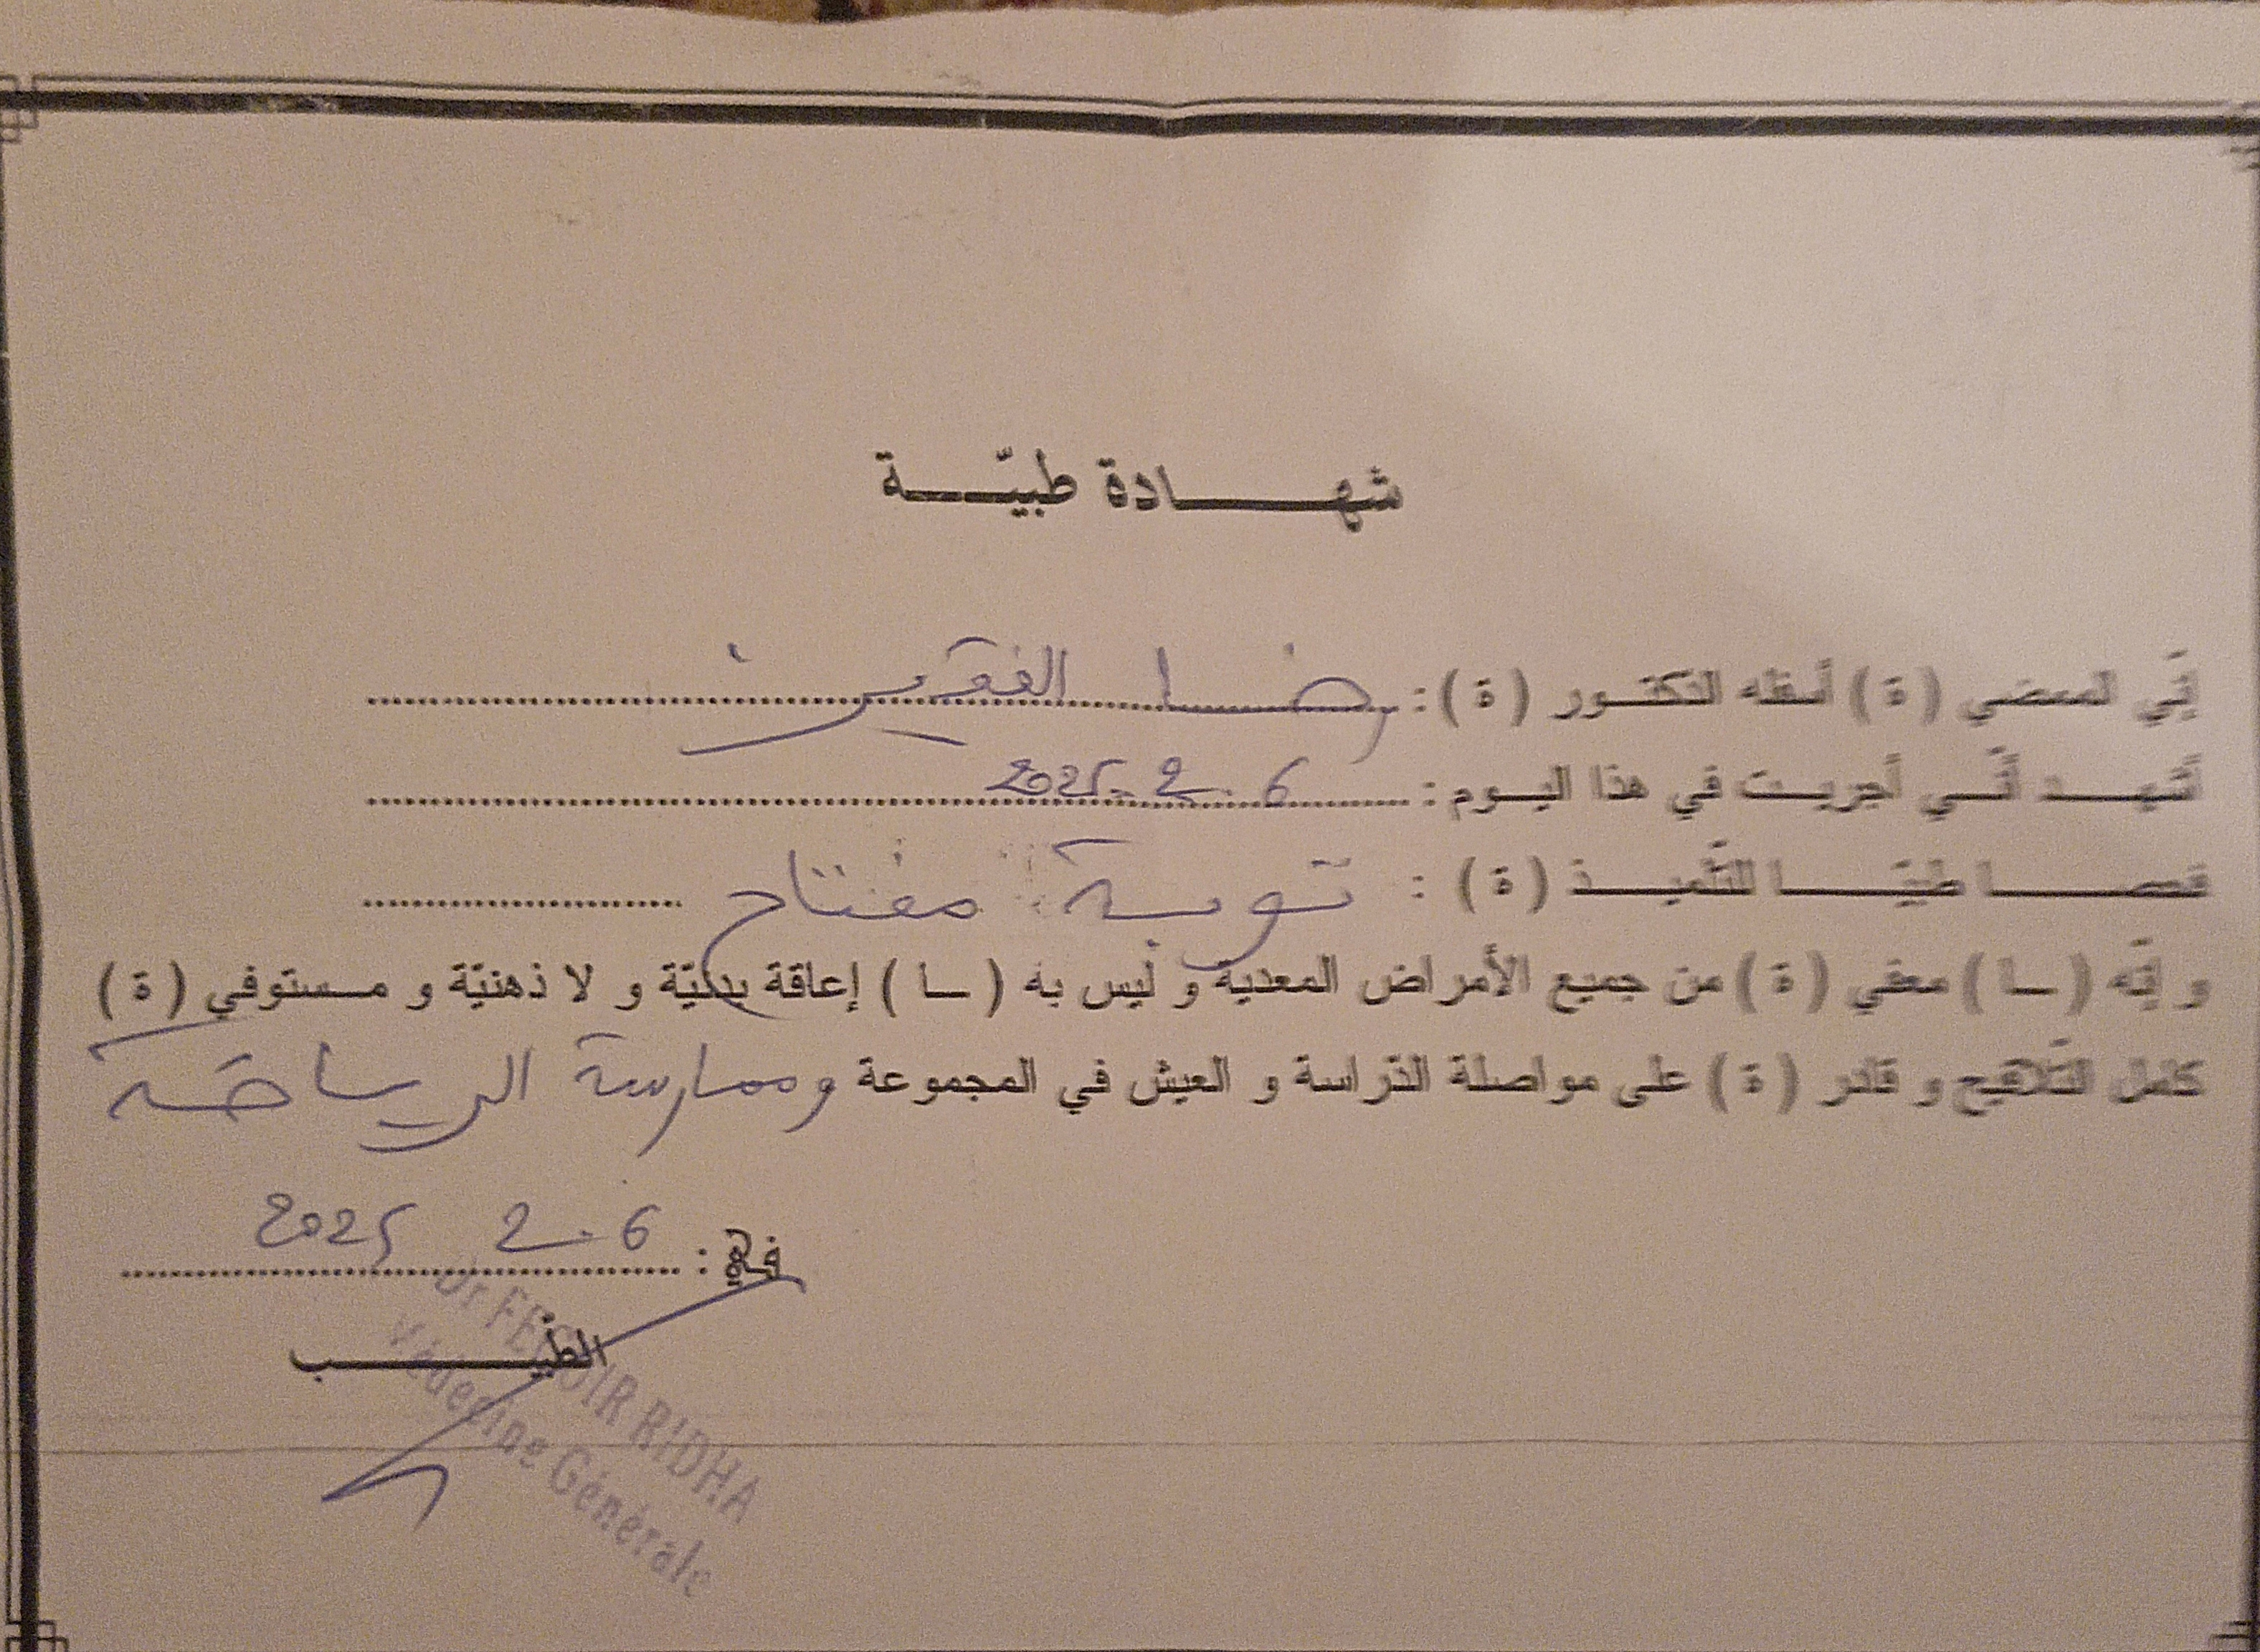 شهادة طبيّة
إنّي الممضي (ة) أسفله الدّكتور (ة) : رضا
أشهد أنّني أجريت في هذا اليوم : 6 . 2 . 2025
فحصا طبيّا للتّلميذ (ة) : توبة مفتاح
و إنّه (ـا) معفي (ة) من جميع الأمراض المعدية و ليس به (ـا) إعاقة بدنيّة و لا ذهنيّة و مستوفي (ة)
كامل التّلاقيح و قادر (ة) على مواصلة الدّراسة و العيش في المجموعة وممارسة الرياضة
في : 6 . 2 2025
الطّبيب
Dr RIDHA
Médecine Générale